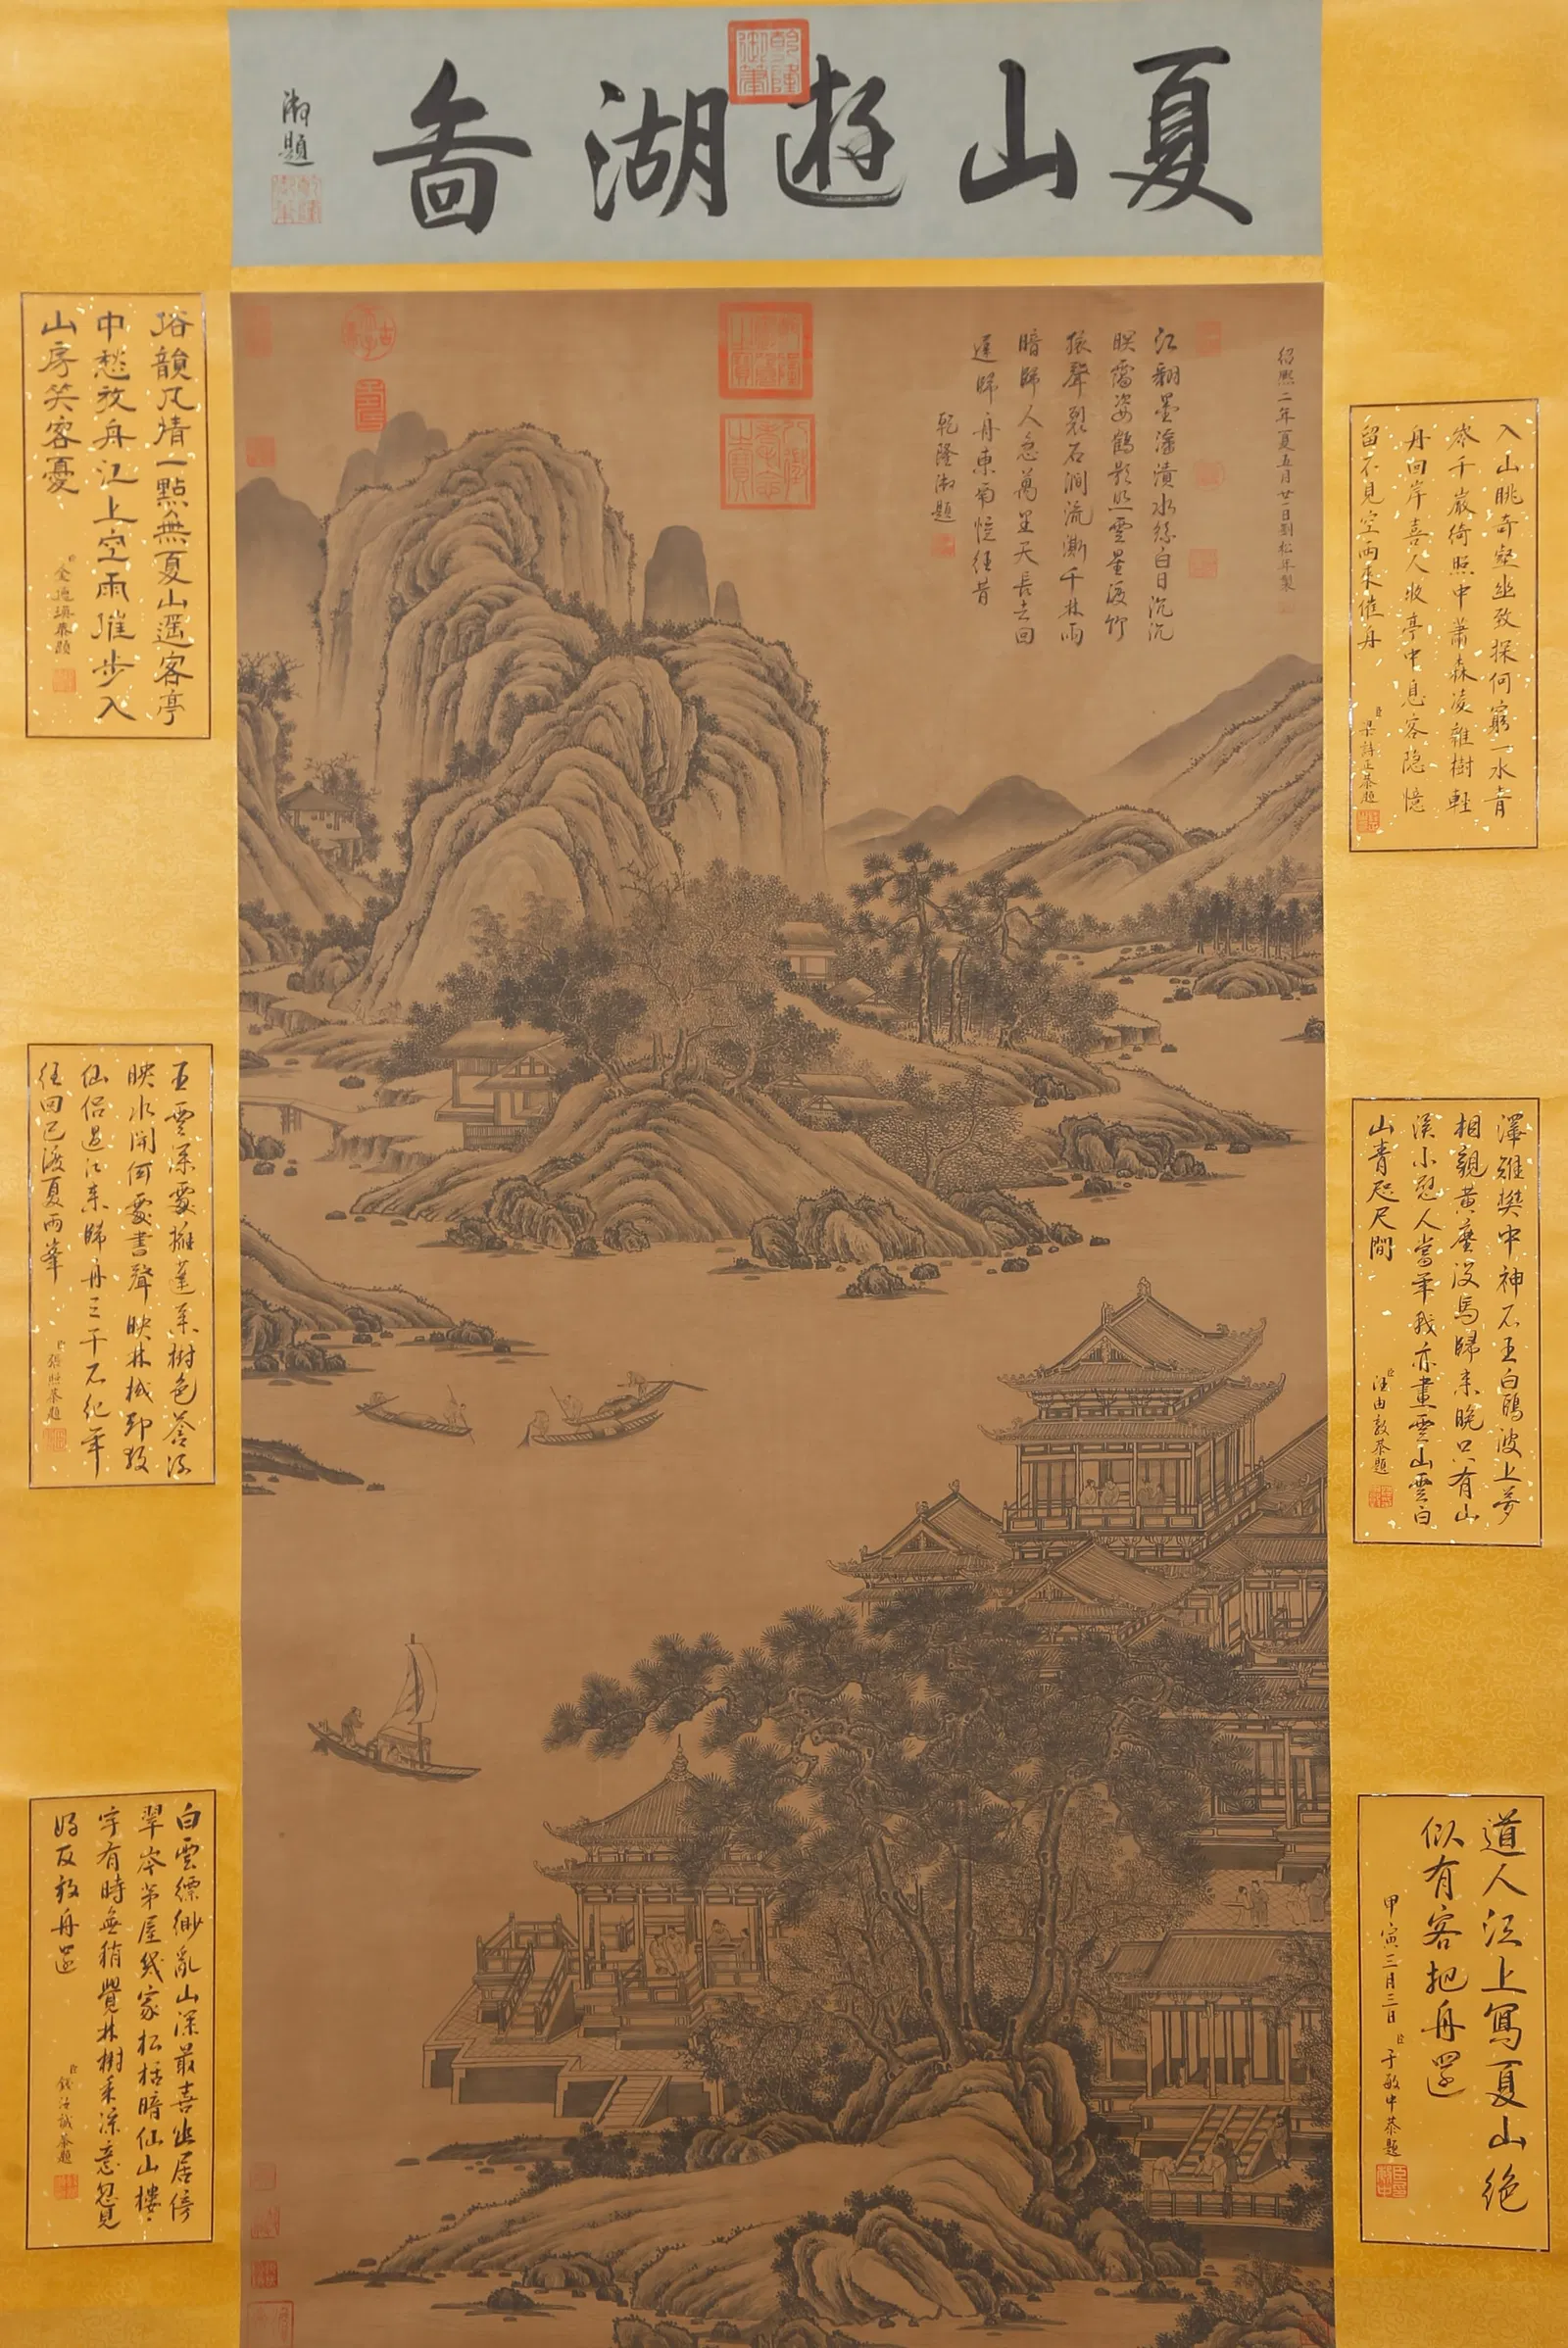 夏山遊湖啚
御題
乾隆御筆
紹熙二年夏五月廿一日劉松年製
江翻墨瀋漬水絲白日沉沉
暝靄姿鶴影照雲星渡竹
猿聲裂石澗流澌千林雨
暗歸人急萬里天長去回
遲歸舟東南憶往昔
乾隆御題
入山眺奇壑幽致探何窮一水青
岑千巖綺照中蕭森凌雜樹輕
舟回岸喜人收亭中息客隐憶
留不見空雨來催舟
臣梁詩正恭題
澤雉樊中神不王白鷗波上夢
相親黄塵没馬歸來晚只有山
溪小慰人當年我亦畫雲山雲白
山青咫尺間
臣汪由敦恭題
道人江上寫夏山絶
似有客把舟還
甲寅三月二日臣于敏中恭題
俗韻凡情一點無夏山遥客亭
中愁放舟江上空雨催步入
山房笑客憂
臣金德瑛恭題
五雲深處擁蓬萊樹色
映水開何處書聲映林
仙侣過江来歸舟三千不紀年
往回已渡夏雨峯
臣張照恭題
白雲縹緲亂山深最喜幽居傍
翠岑茅屋幾家松栝暗仙山樓
宇有時無稍覺林樹来凉意忽見
好友放舟還
臣錢汝誠恭題